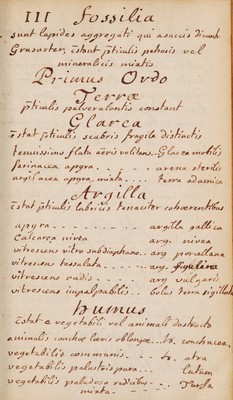 III fossilia
sunt lapides aggregati qui a succis
Grusarter, constant pticulis petrosis vel
mineralicis mixtis
Primus Ordo
Terræ
pticulis pulverulentis constant
Glarea
constat pticulis scabris fragila distinctis
tenuissimo flatu aëris volitans. Glarea mobilis
farinacea apyra . . . . arena sterilis
argilacea apyra, mixta . . . terra adamica
Argilla
constat pticulis labriciis tenaciter cohærentibus
apyra . . . . . . . . argilla gallica
Calcarea nivea . . . . . arg. nivea
vitrescens vitro subdiaphano. arg porcellana
vitrescens tessulata . . . . . arg figulana
vitrescens rudis . . . . . arg vulgaris
vitrescens impalpabilis . . bolus terra sigillata
humus
constat e vegetabili vel animali destructo
animalis conchæ lævis oblongæ . . h. conchacea,
vegetabilis communis . . . . h. atra
vegetabilis palustris pura . . . lutum
vegetabilis paludosa radicibus . . . Turfa
mixta